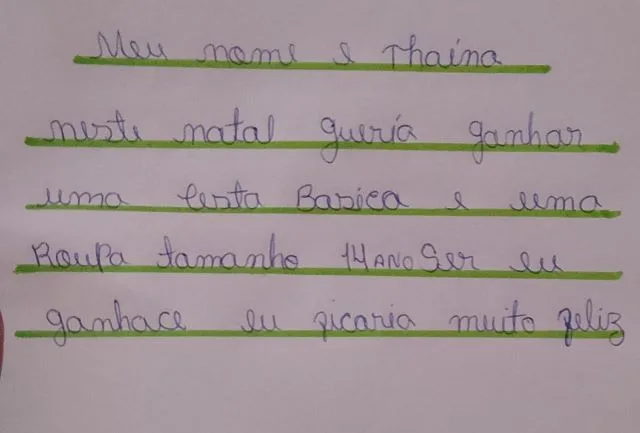 Meu nome e Thaina
neste natal gueria ganhar
uma cesta Basica e uma
Roupa tamanho 14 ANO Ser eu
ganhace eu ficaria muito feliz